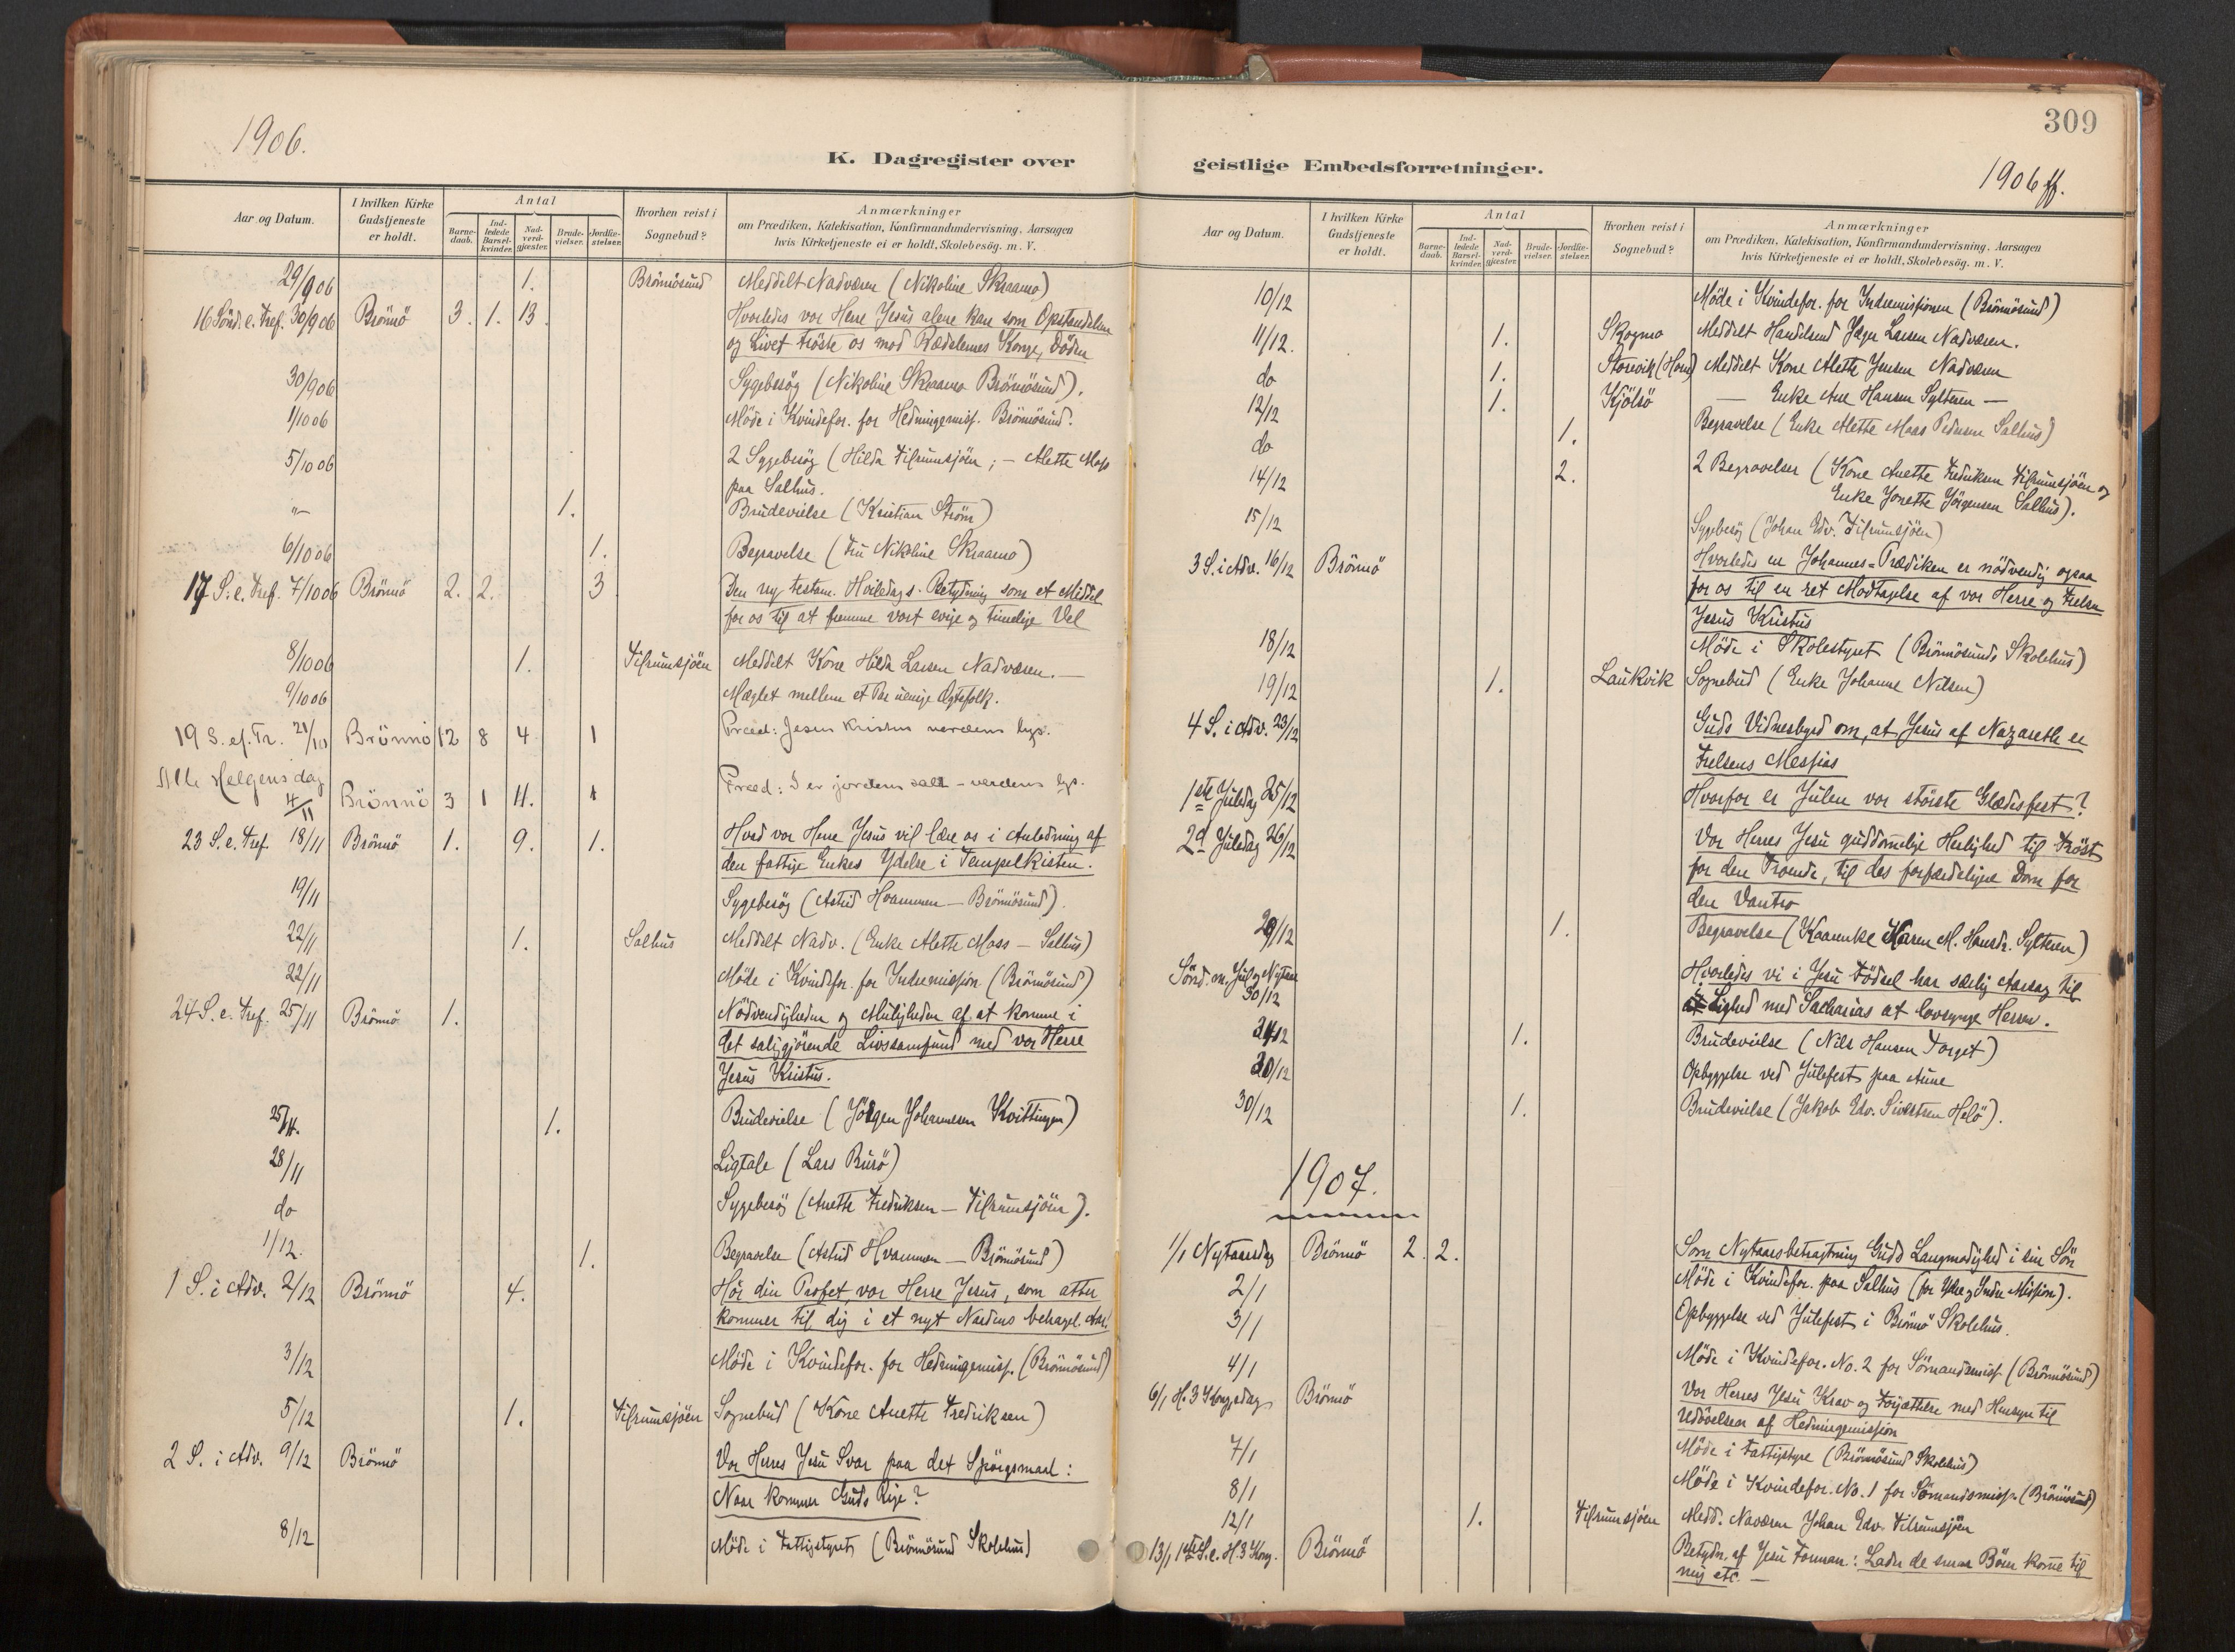 1906.
K. Dagregister over
Aar og Datum.
I hvilken Kirke Gudstjeneste er holdt.
Antal
Barne-daab.
Ind-ledede Barsel-kvinder.
Nad-verd-gjæster.
Brude-vielser.
Jordfæ-stelser.
Hvorhen reist i Sognebud?
Anmærkninger
om Prædiken, Katekisation, Konfirmandundervisning. Aarsagen
hvis Kirketjeneste ei er holdt. Skolebesög. m. V.
29/9 06 1. Brönnösund Meddelt Nadveren (Nikoline Skraamo)
16 Sönd. e. Tref. 30/9 06 Brönnö 3. 1. 13. Hvorledes vor Herre Jesus alene kan som Opstandelsen
og Livet tröste os mod Rædslernes Konge, Döden
30/9 06 Sygebesög (Nikoline Skraamo Brönnösund).
1/10 06 Möde i Kvindefor. for Hedningemiss. Brönnösund.
5/10 06 2 Sygebesög (Hilda Tilrumsjöen; - Alette Moss
paa Salhus.
"- 1. Brudevielse (Kristian Ström)
6/10 06 1. Begravelse (Fru Nikoline Skraamo)
17 S. e. Tref. 7/10 06 Brönnö 2. 2. 3 Den ny testam. Hviledags Betydning som et Middel
for os til at fremme vort evige og timelige Vel
8/10 06 1. Tilrumsjöen Meddelt Kone Hilda Larsen Nadveren. —
9/10 06 Mæglet mellem et Par uenige Ægtefolk.
19 S. ef. Tr. 21/10 Brönnö 12 8 4 1 Præd: Jesus Kristus verdens lys.
Alle Helgens dag
4/11 Brönnö 3 1 11. 1 Præd: I er jordens salt - verdens lys.
23 S. e. Tref. 18/11 Brönnö 1. 9. 1. Hvad vor Herre Jesus vil lære os i Anledning af
den fattige Enkes Ydelse i Tempelkisten.
19/11 Sygebesög (Astrid Hvammen — Brönnösund).
22/11 1. Salhus Meddelt Nadv. (Enke Alette Moss — Salhus)
22/11 Möde i Kvindefor. for Indremission (Brönnösund)
24 S. e. Tref. 25/11 Brönnö 1. Nödvendigheden og Muligheden af at komme i
det saliggjörende Livssamfund med vor Herre
Jesus Kristus.
25/11. 1. Brudevielse (Jörgen Johannesen Kvittingen)
28/11 Ligtale (Lars Burö)
do Sygebesög (Anette Fredriksen — Tilrumsjöen).
1/12. 1. Begravelse (Astrid Hvammen — Brönnösund)
1 S. i Adv. 2/12 Brönnö 4. Hör din Profet, vor Herre Jesus, som atter
kommer til dig i et nyt Naadens behagel. Aar!
3/12 Möde i Kvindefor. for Hedningemiss. (Brönnösund)
5/12 1. Tilrumsjöen Sognebud (Kone Anette Fredriksen)
2 S. i Adv. 9/12 Brönnö Vor Herres Jesu Svar paa det Spörgsmaal:
Naar kommer Guds Rige?
8/12 Möde i Fattigstyret (Brönnösund Skolehus)
309
geistlige Embedsforretninger.
1906 ff.
Aar og Datum.
I hvilken Kirke Gudstjeneste er holdt.
Antal
Barne-daab.
Ind-ledede Barsel-kvinder.
Nad-verd-gjæster.
Brude-vielser.
Jordfæ-stelser.
Hvorhen reist i Sognebud?
Anmærkninger
om Prædiken, Katekisation, Konfirmandundervisning. Aarsagen
hvis Kirketjeneste ei er holdt, Skolebesög. m. V.
10/12 Möde i Kvindefor. for Indremissionen (Brönnösund)
11/12. 1. Skogmo Meddelt Handelsmd Larsen Nadveren.
do 1. Storvik (Horn) Meddelt Kone Alette Jensen Nadveren
12/12 1. Kjölsö — Enke Ane Hansen Sylteren —
do 1. Begravelse (Enke Alette Moss Pedersen Salhus)
14/12 2. 2 Begravelser (Kone Anette Fredriksen Tilrumsjöen og
Enke Jonette Jörgensen Salhus).
15/12 Sygebesög (Johan Edv. Tilrumsjöen)
3 S. i Adv. 16/12 Brönnö Hvorledes en Johannes-Prædiken er nödvendig ogsaa
for os til en ret Modtagelse af vor Herre og Frelser
Jesus Kristus
18/12 Möde i Skolestyret (Brönnösunds Skolehus)
19/12 1. Laukvik Sognebud (Enke Johanna Nilsen)
4 S. i Adv. 23/12 Guds Vidnesbyrd om, at Jesus af Nazareth er
Frelsens Messias
1ste Juledag 25/12 Hvorfor er Julen vor störste Glædesfest?
2d Juledag 26/12 Vor Herres Jesu guddommelige Herlighed til Tröst
for den Troende, til des forfærdeligere Dom for
den Vantro
29/12 1. Begravelse (Kaarenke Karen M. Hansdr. Sylteren)
Sönd. m. Jul og Nytaar
30/12 Hvorledes vi i Jesu Födsel har særlig Aarsag til
i Lighed med Sacharias at lovsynge Herren.
1. Brudevielse (Nils Hansen Torget)
30/12 Opbyggelse ved Julefest paa Aune
30/12 1. Brudevielse (Jakob Edv. Sivertsen Helö).
1907.
1/1 Nytaarsdag Brönnö 2. 2. Som Nytaarsbetragtning Guds Langmodighed i sin Sön
2/1 Möde i Kvindefor. paa Salhus (for Ydre og Indre Mission).
3/1 Opbyggelse ved Julefest i Brönnö Skolehus.
4/1 Möde i Kvindefor. No. 2 for Sömandsmiss. (Brönnösund)
6/1 H. 3 Kongedag Brönnö Vor Herres Jesu Krav og Forjættelse med Hensyn til
Udövelsen af Hedningemission
7/1 Möde i Fattigstyre (Brönnösund Skolehus)
8/1 Möde i Kvindefor. No. 1 for Sömandsmiss. (Brönnösund)
12/1 1. Tilrumsjöen Medd. Naveren Johan Edv. Tilrumsjöen
13/1 1ste S. e. H. 3 Kong. Brönnö Betydn. af Jesu Forman: Lader de smaa Börn komme til
mig etc. —